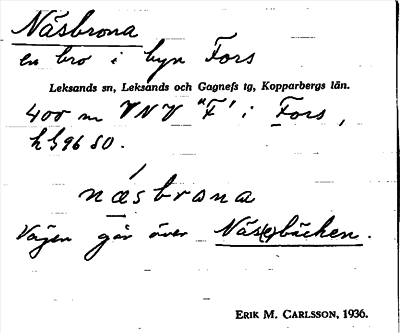 Näsbrona
en bro i byn Fors
Leksands sn, Leksands och Gagnefs tg, Kopparbergs län.
400 m VNV "F" i Fors,
hG9680.
näsbrona
Vägen går över Näs(e)bäcken.
ERIK M. CARLSSON, 1936.